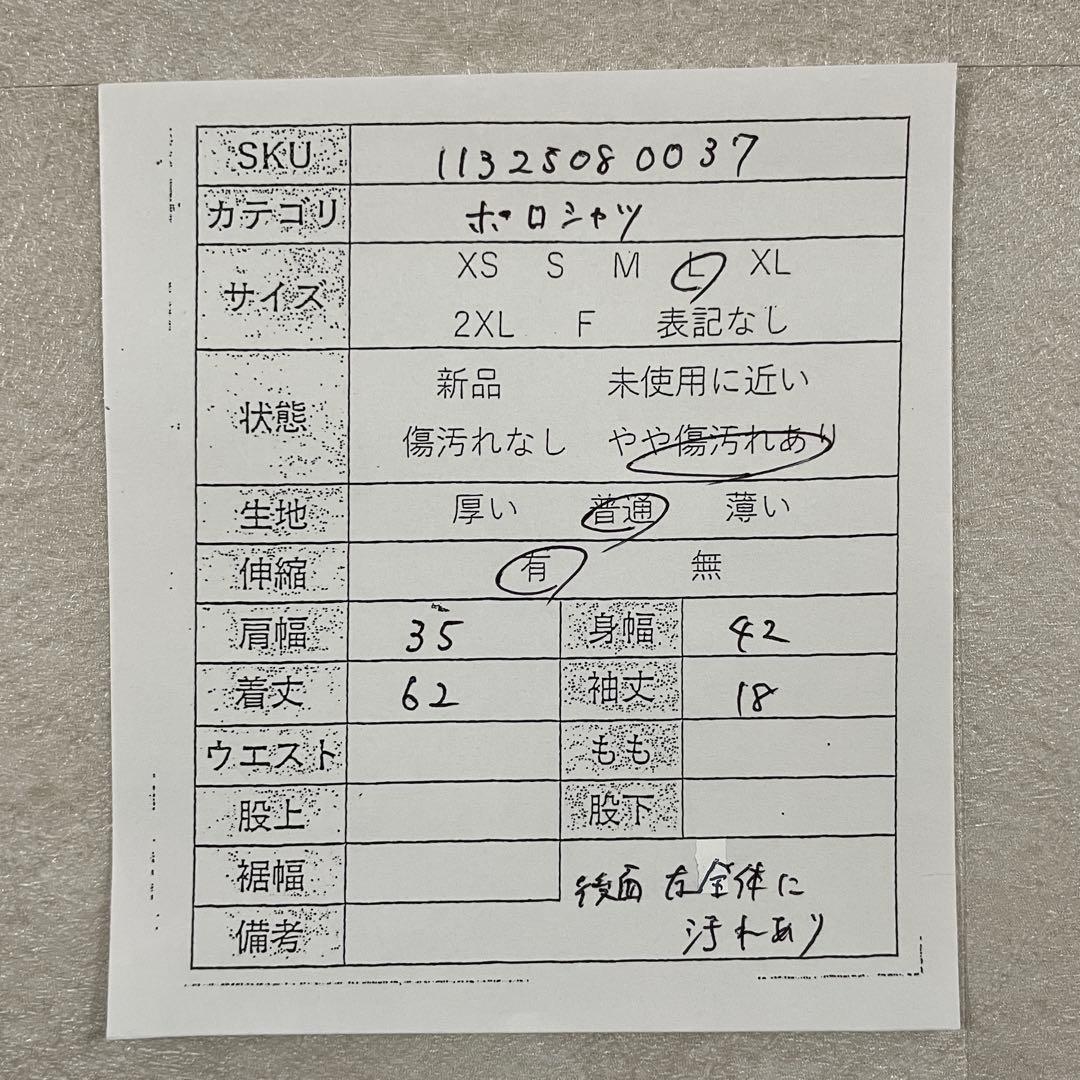 SKU 11325080037
カテゴリ ポロシャツ
サイズ XS S M L XL
2XL F 表記なし
状態 新品 未使用に近い
傷汚れなし やや傷汚れあり
生地 厚い 普通 薄い
伸縮 有 無
肩幅 35 身幅 42
着丈 62 袖丈 18
ウエスト もも
股上 股下
裾幅
後面 左全体に
備考 汚れあり